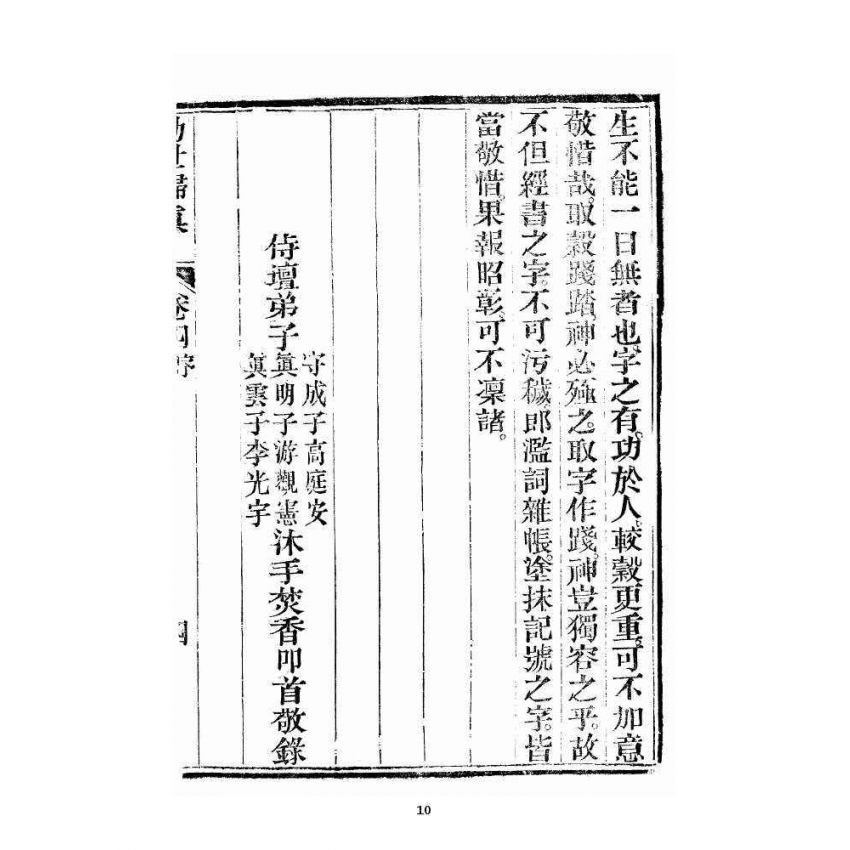 生不能一日無者也。字之有功於人。較穀更重。可不加意
敬惜哉。取穀踐踏。神必殛之。取字作踐。神豈獨容之乎。故
不但經書之字。不可污穢。即濫詞雜帳。塗抹記號之字。皆
當敬惜。果報昭彰。可不凜諸。
侍壇弟子
守成子高庭安
眞明子游觀憲
眞雲子李光宇
沐手焚香叩首敬錄
卷四序
四
10